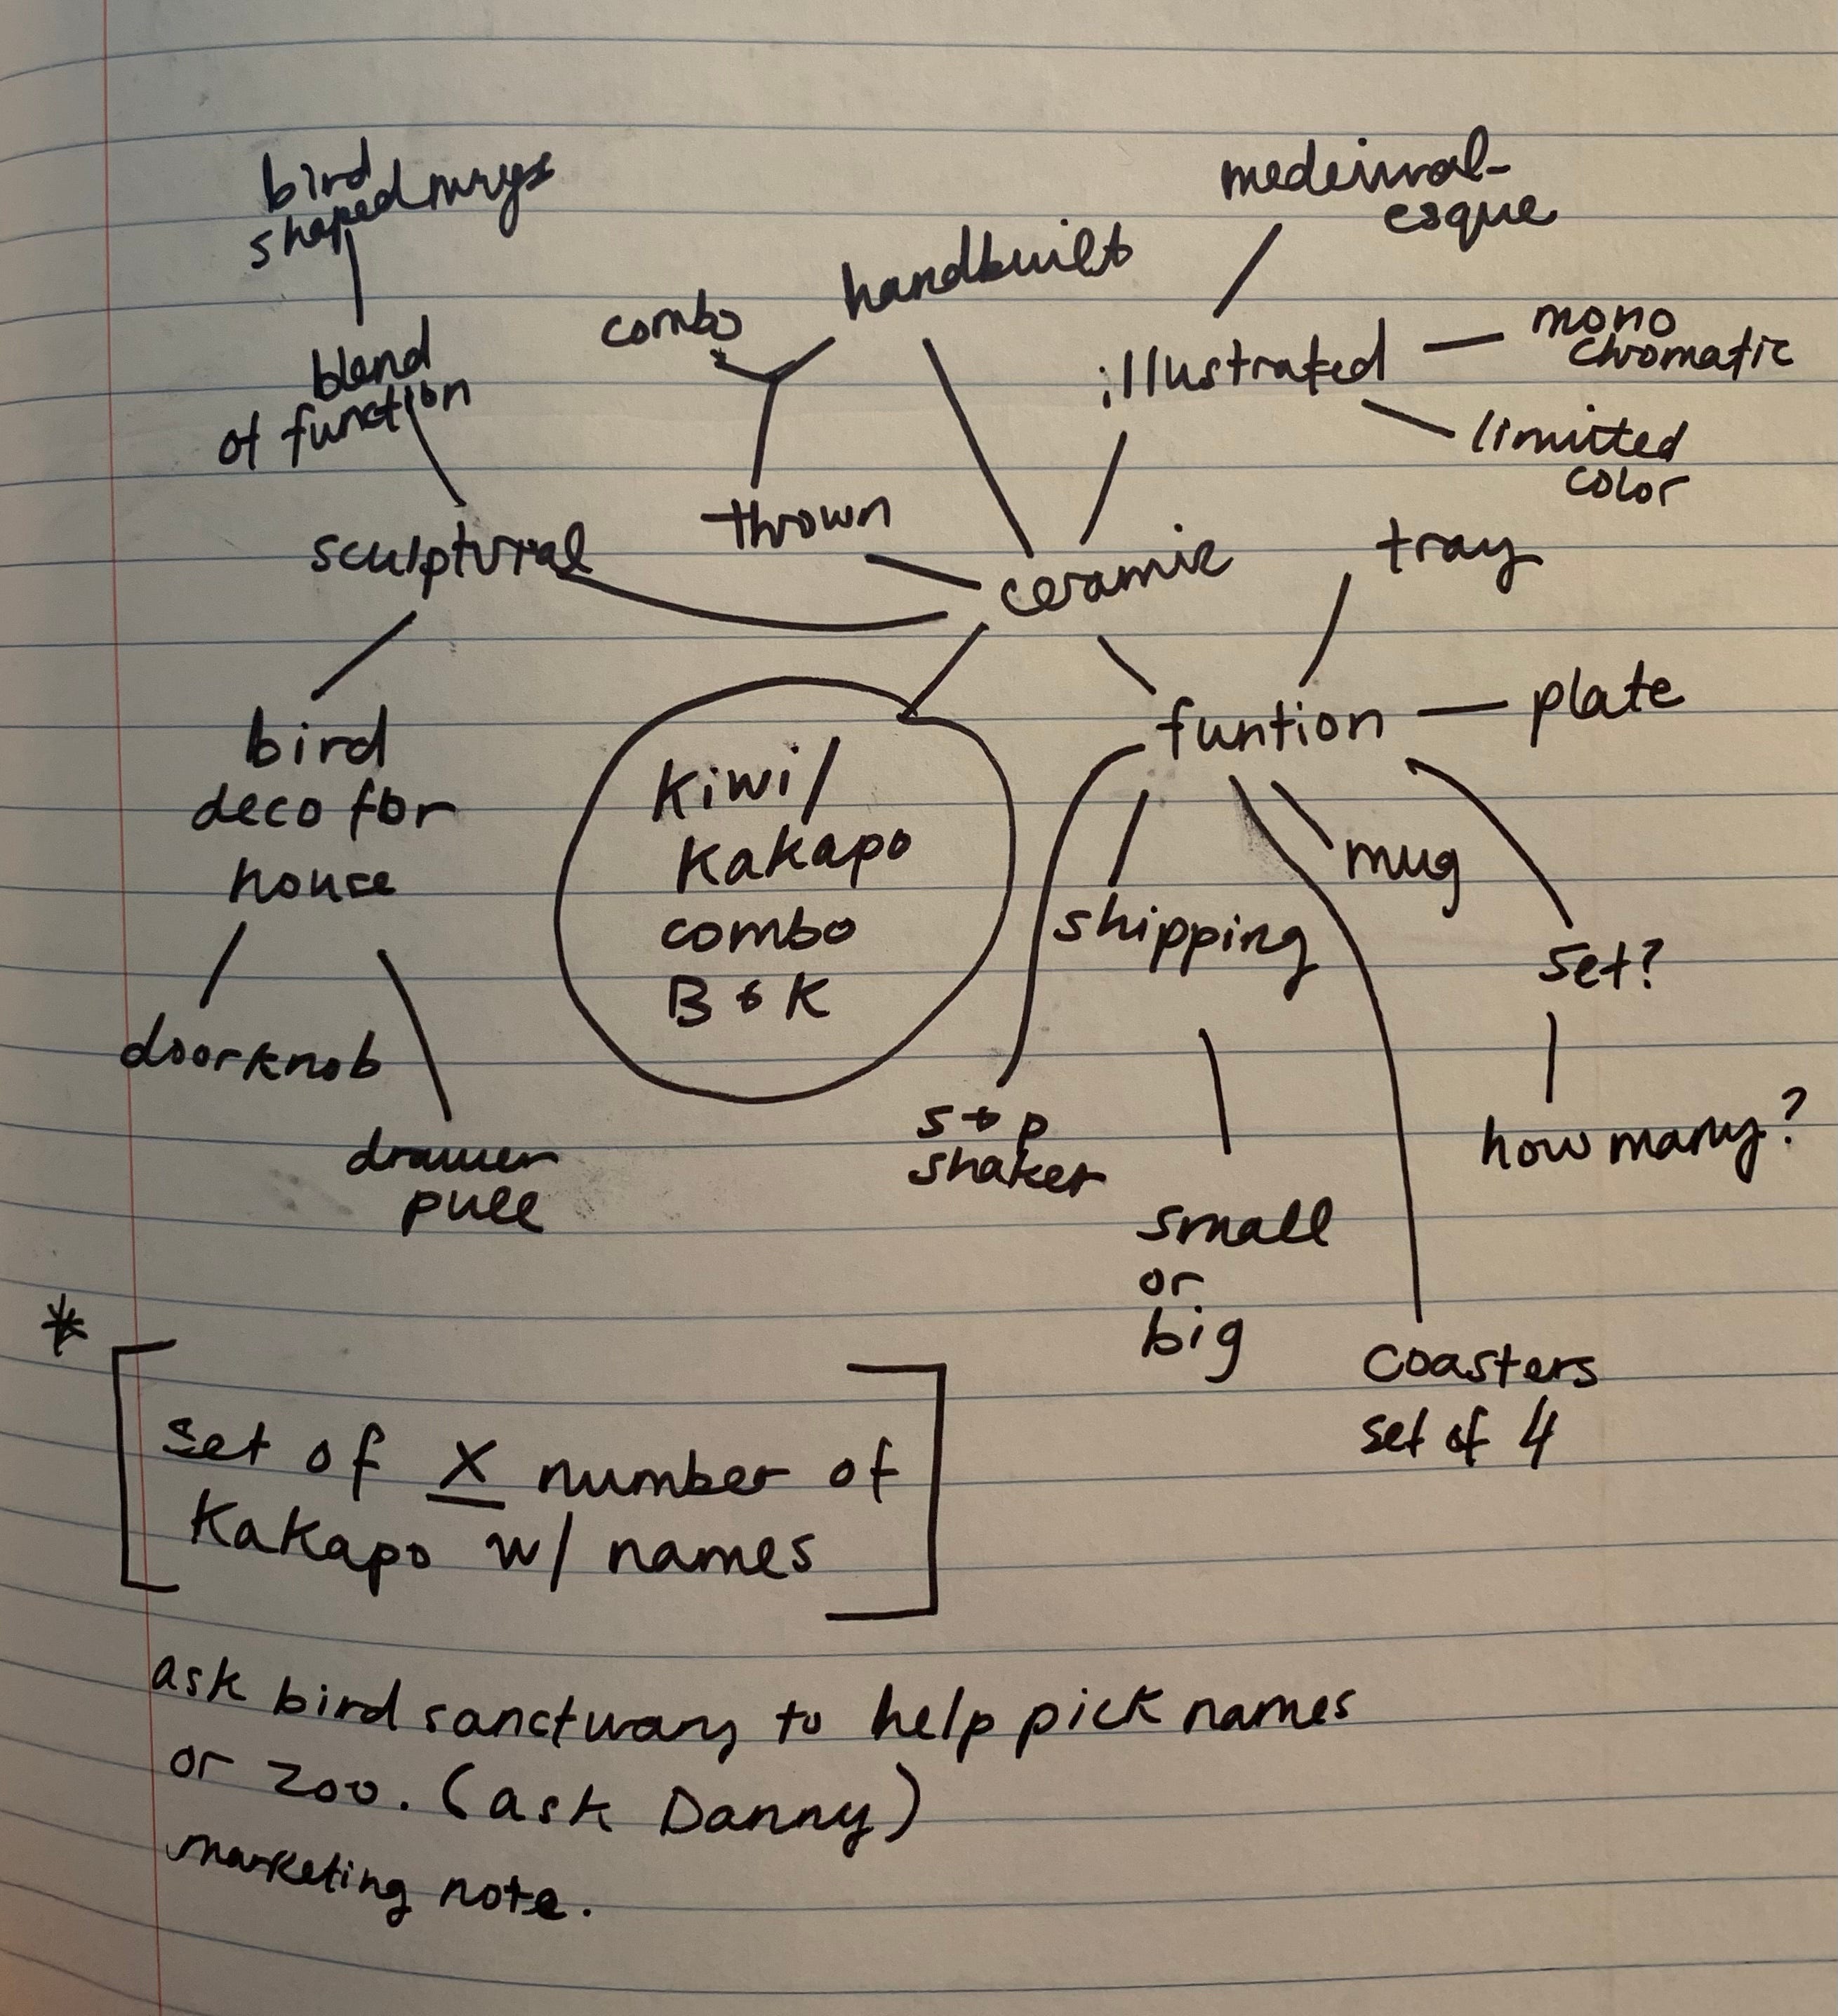 bird
shaped mugs
medeivral-
esque
handbuilt
combo
illustrated
mono
chromatic
blend
of function
limitted
color
thrown
sculptural
ceramic
tray
funtion
plate
bird
deco for
house
kiwi/
kakapo
combo
B & K
mug
shipping
set?
doorknob
drawer
pull
s + p
shaker
how many?
small
or
big
coasters
set of 4
*
set of X number of
kakapo w/ names
ask bird sanctuary to help pick names
or zoo. (ask Danny)
marketing note.